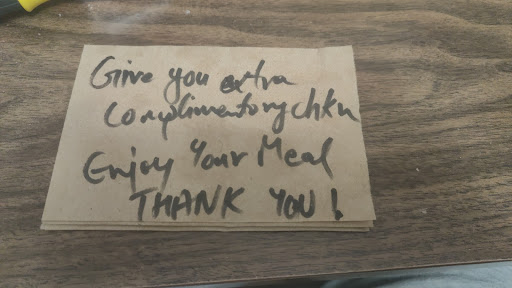 Give you extra
Complimentory chkn
Enjoy Your Meal
THANK YOU!